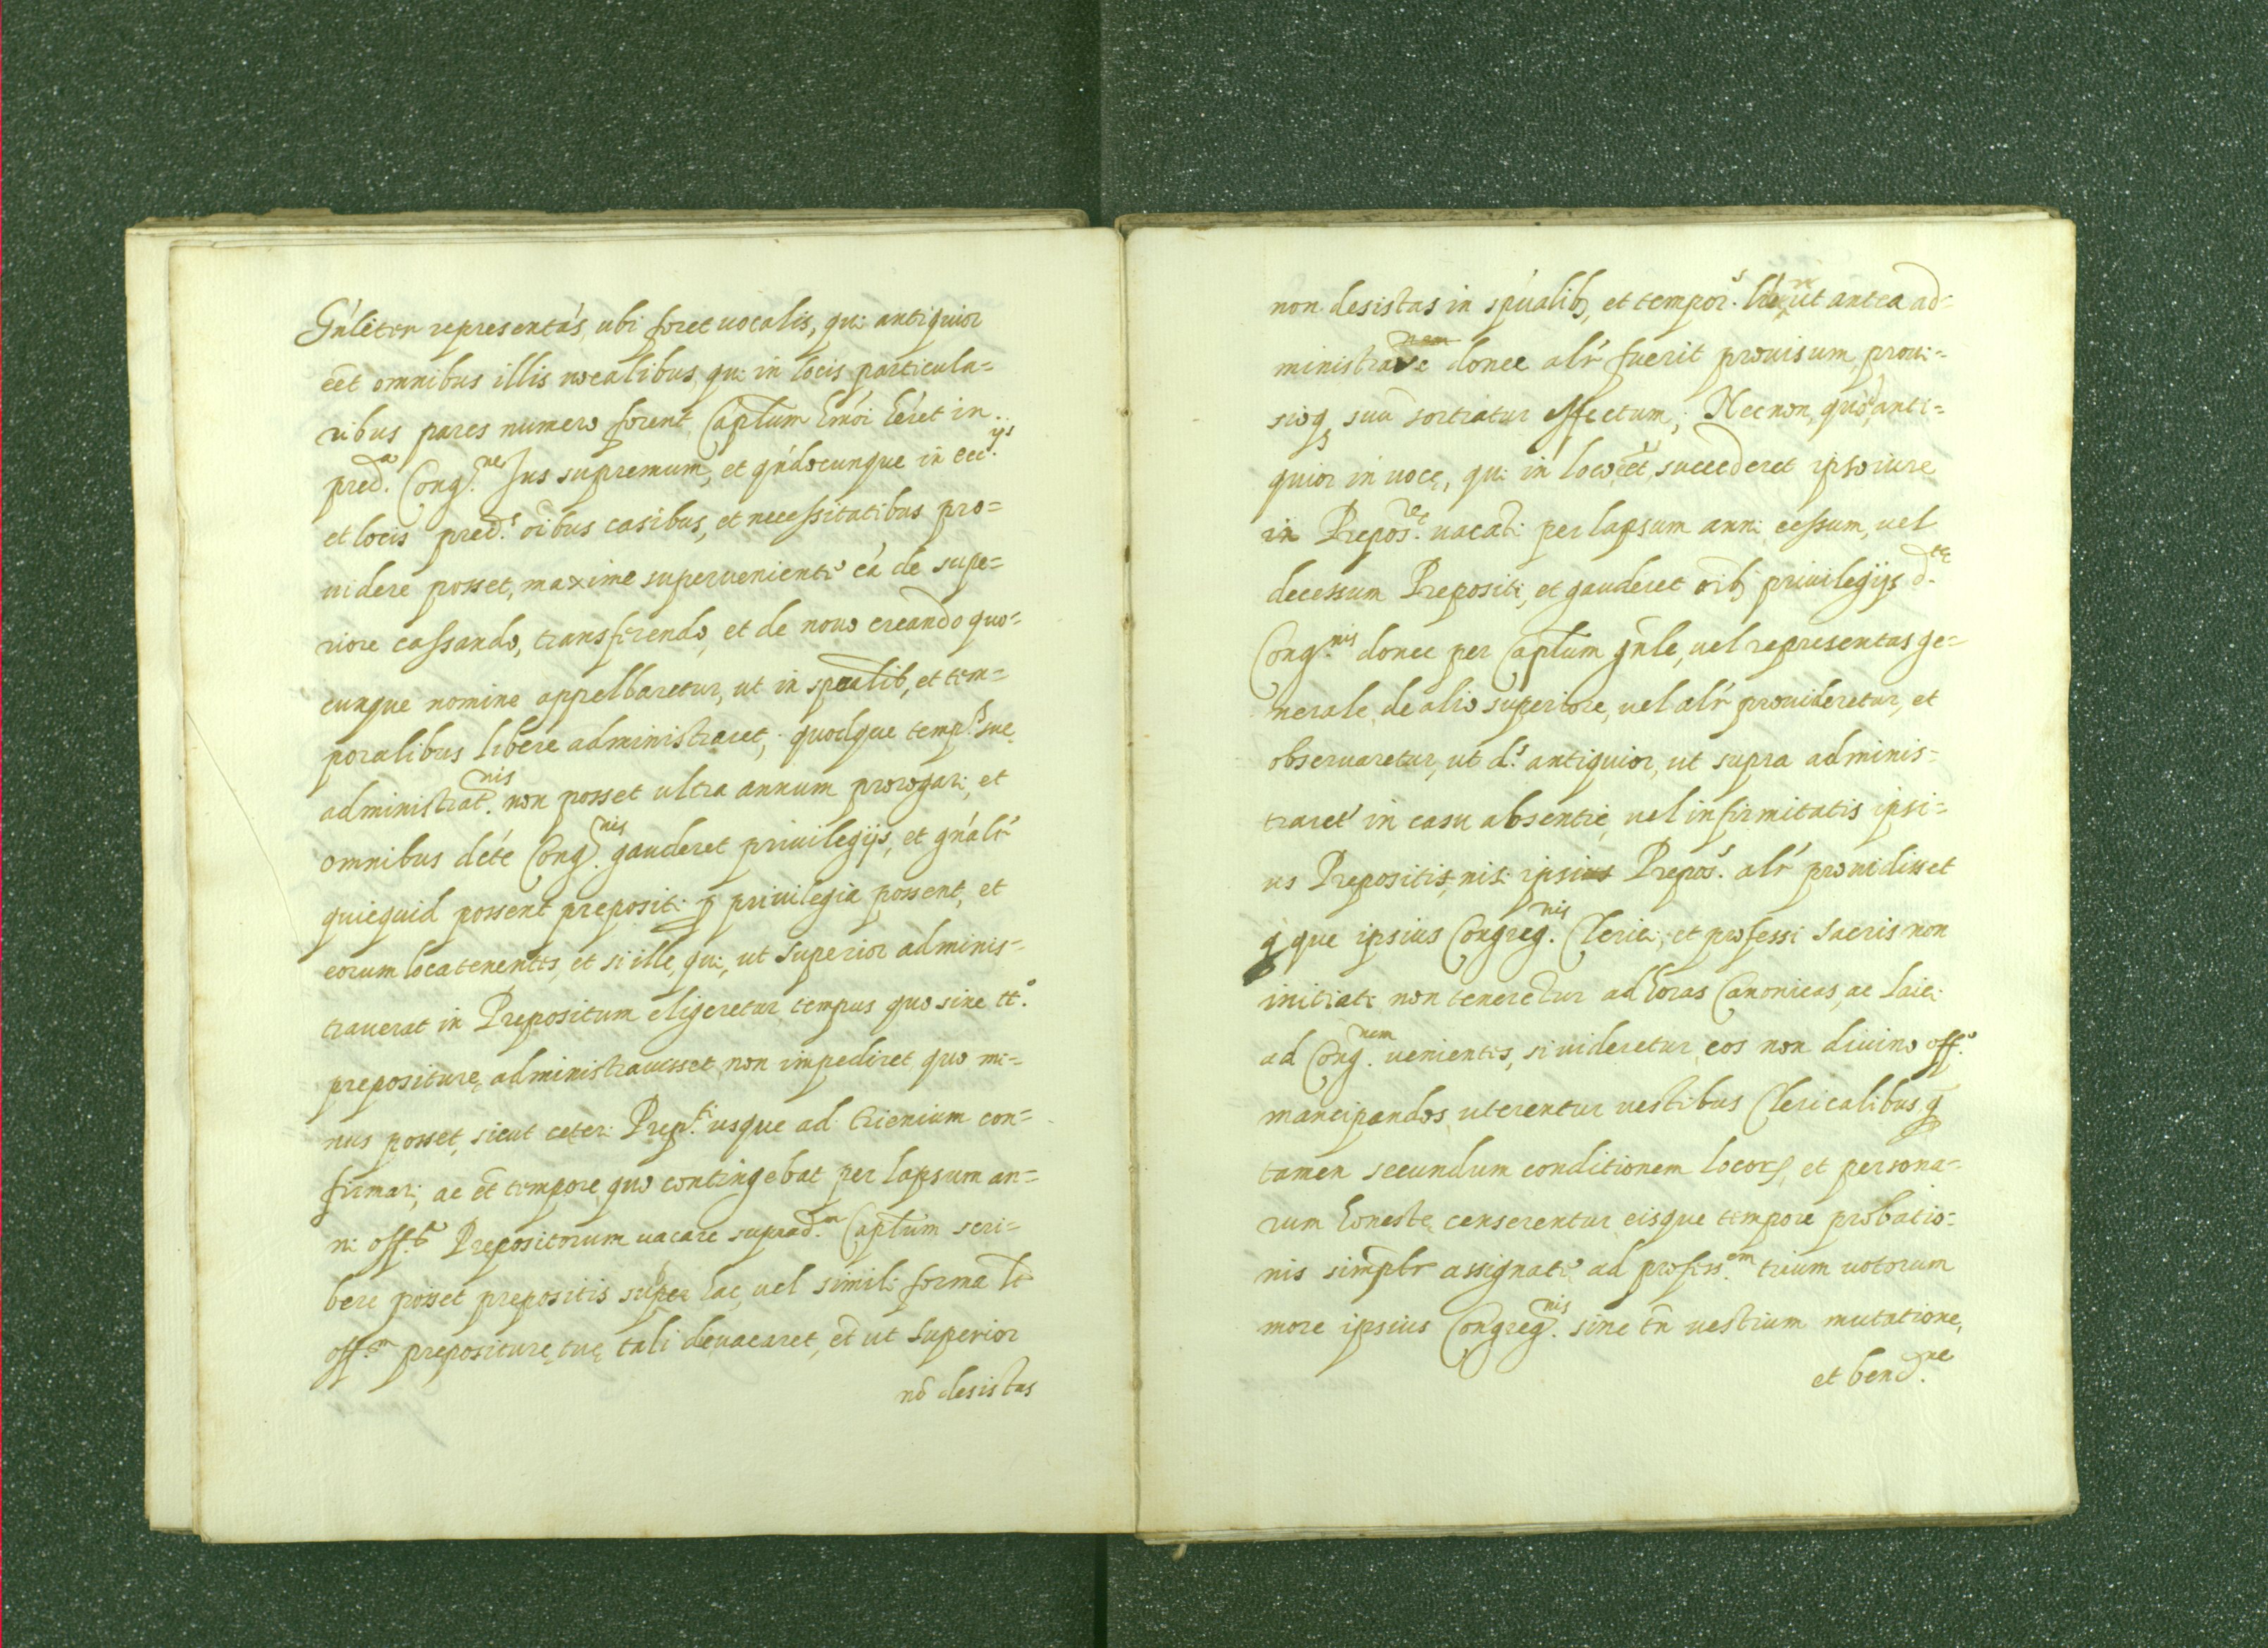 Gńleter representás, ubi foret uocalis, qui antiquior
eēt omnibus illis uocalibus qui in locis particula=
ribus pares numero forent, Capłum hmói héret in
pred.ª Cong.ne Jus supremum, et qńdocunque in ecc.ijs
et locis pred.s oībus casibus, et necessitatibus pro=
uidere posset, maxime superuenienti cá de supe=
riore cassando, transferendo, et de nouo creando quo=
cunque nomine appellaretur, ut in spūalib, et tem=
poralibus libere administraret, quodque temp.s sue
administrat.nis non posset ultra annum prorogari, et
omnibus déte Cong.nis gauderet priuilegijs, et gńalr
quicquid possent prepositi p priuilegia possent, et
eorum locatenentes, et si ille, qui, ut Superior adminis=
trauerat in Prepositum eligeretur tempus quo sine tt.º
prepositurę, administrauisset non impediret quo mi=
nus posset, sicut ceteri Prep.ti usque ad trienium con=
firmari, ac ēt tempore quo contingebat per lapsum an=
ni off.ª Prepositorum uacare suprad.m Capłum scri=
bere posset prepositis super hac, uel simili forma
off.m prepositurę tuę tali de uacaret, et ut Superior
nō desistas
non desistas in spúalib, et tempor.s ut antea ad=
ministrare donec alr fuerit prouisum, proui=
sioq suū sortiatur effectum; Necnon, quod anti=
quior in uocę, qui in loco eēt, succederet ipso iure
in Prepos.re uacati per lapsum anni cessum, uel
decessum Prepositi, et gauderet oīb priuilegijs d.tę
Cong.nis donec per Capłum gńle, uel representas ge=
nerale, de alio superiore, uel alr prouideretur, et
obseruaretur, ut d.s antiquior, ut supra adminis=
traret in casu absentię, uel infirmitatis ipsi=
us Prepositi, nisi ipsius Prepos.s alr prouidisset
q que ipsius Congreg.nis Clerici, et professi sacris non
initiati non tenerētur ad horas Canonicas, ac laici
ad Cong.nem uenientes, si uideretur eos non diuino off.º
mancipandos uterentur uestibus Clericalibus q
tamen secundum conditionem locorꝝ, et persona=
rum honestę censerentur eisque tempore probatio=
nis simplr assignato ad profess.em trium uotorum
more ipsius Congreg.nis sine tn̄ uestium mutatione,
et bend.ne